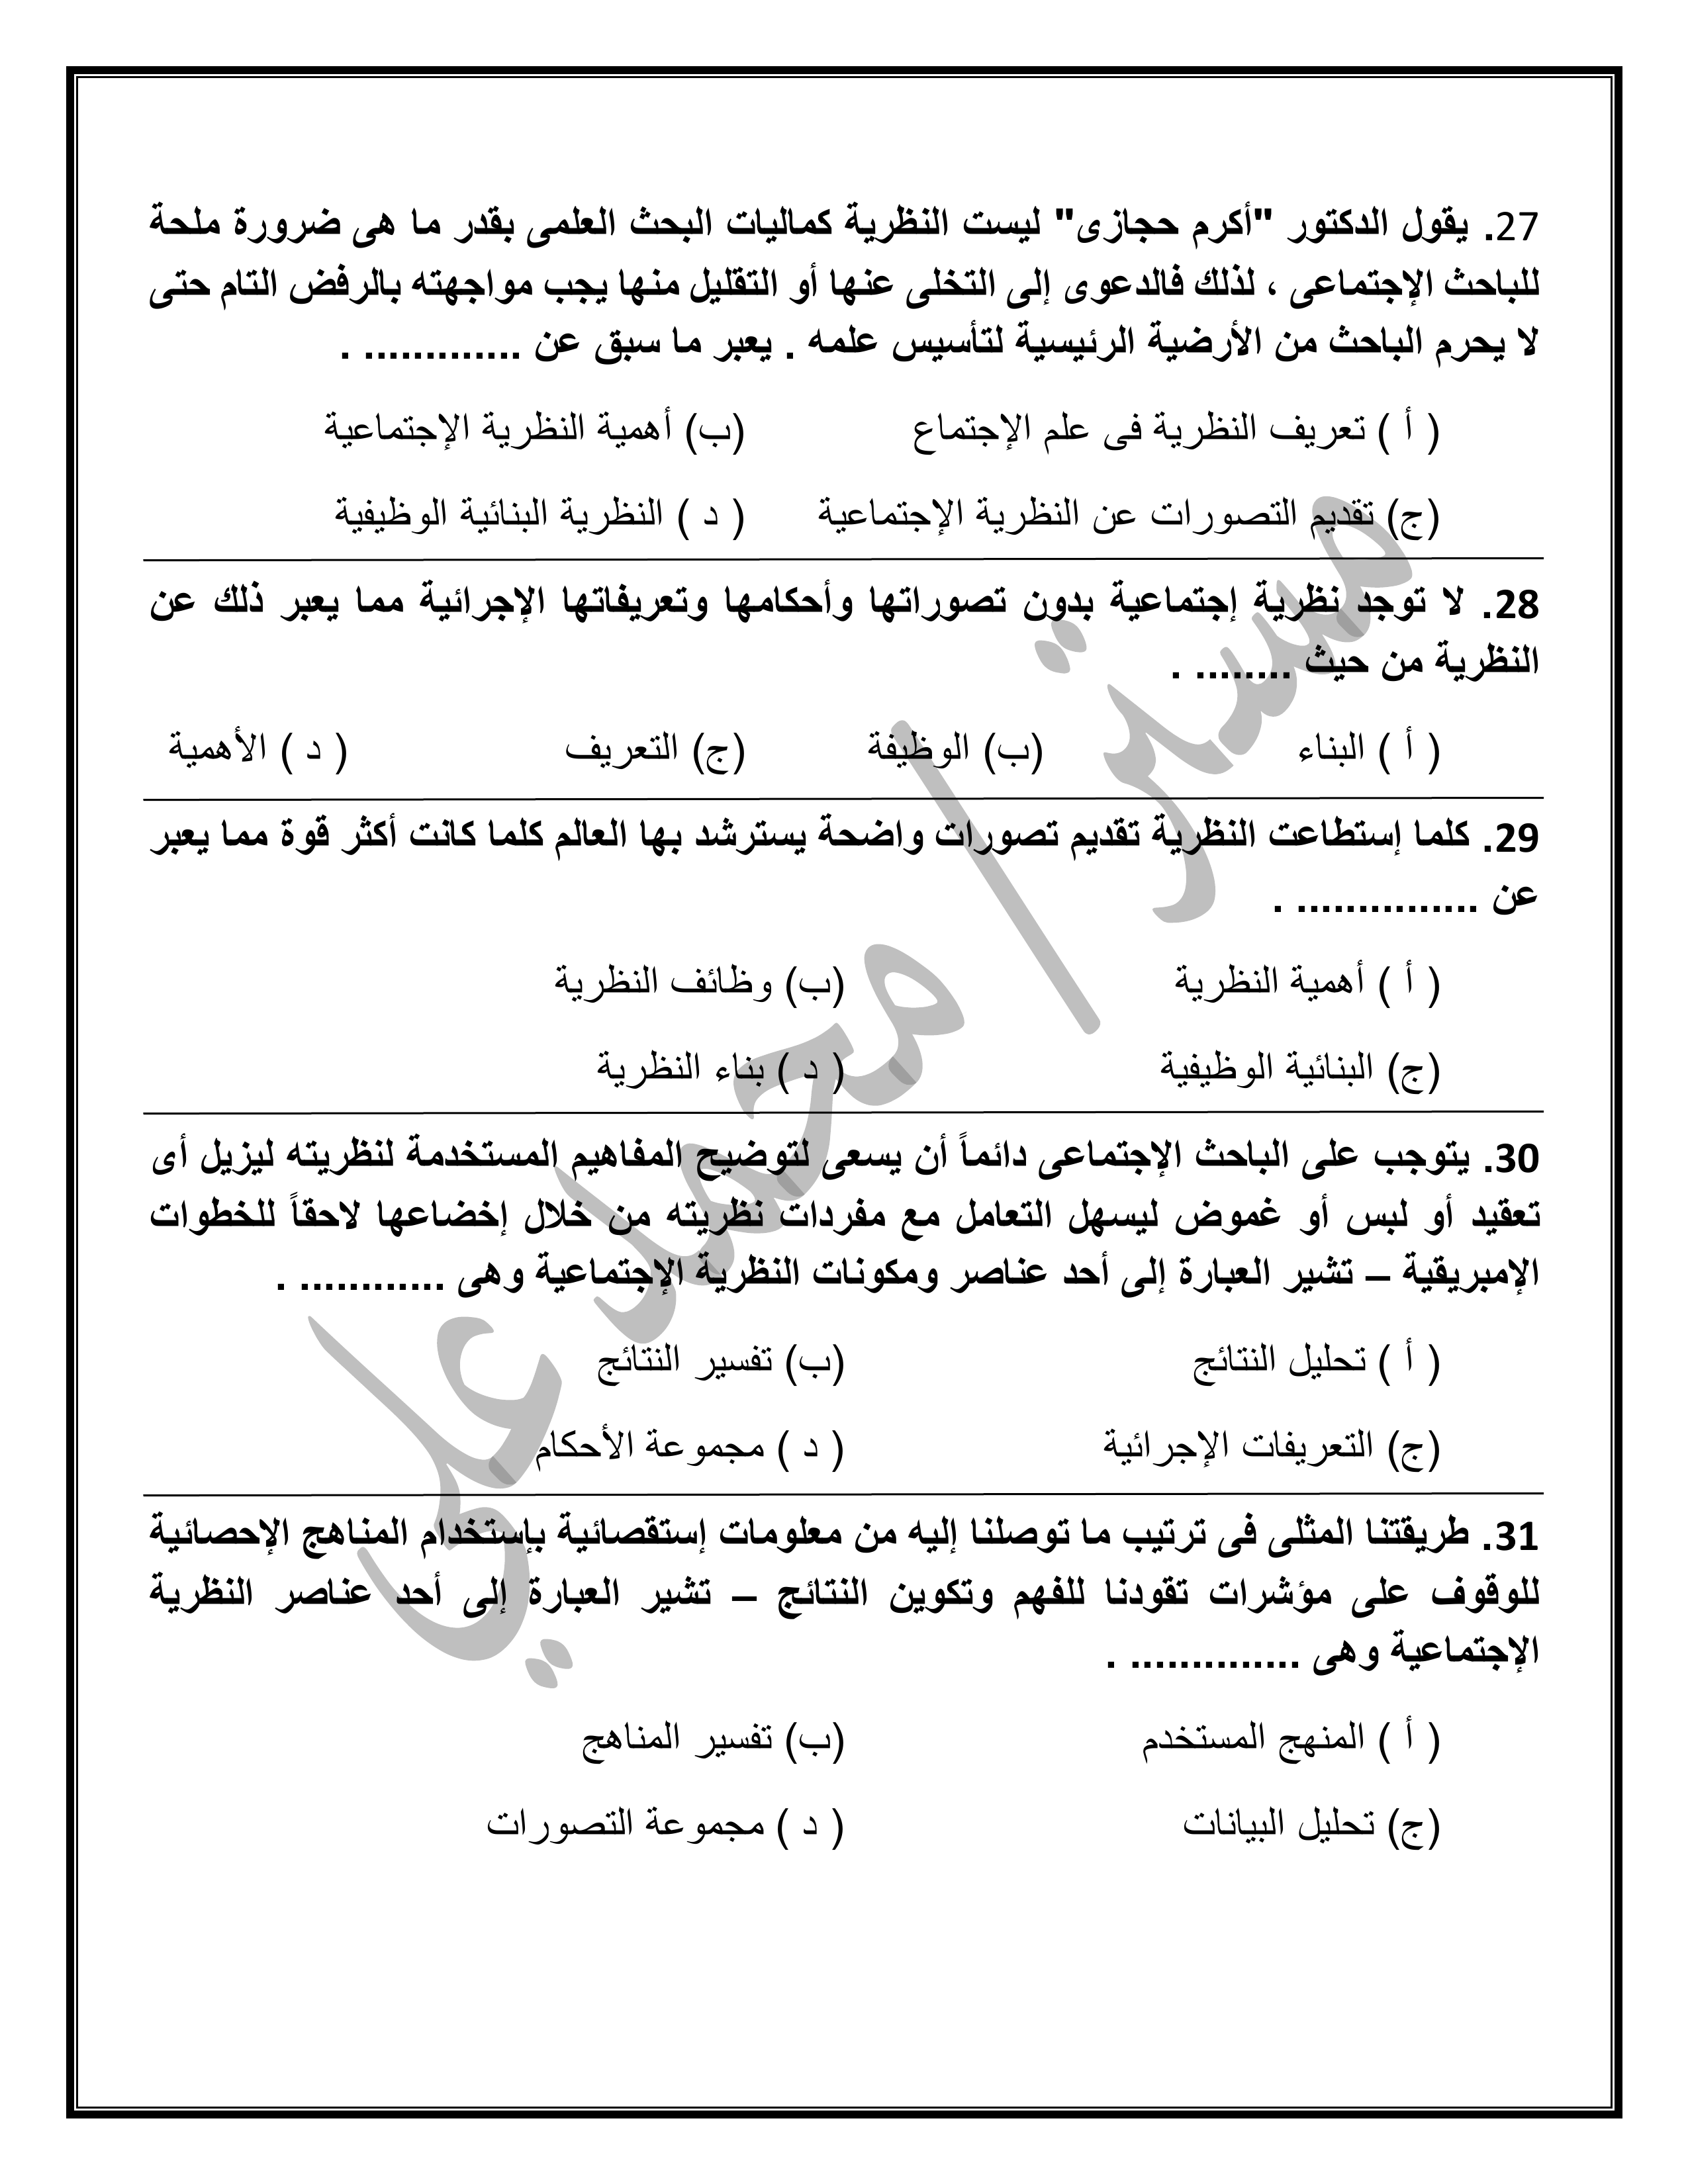 27. يقول الدكتور "أكرم حجازى" ليست النظرية كماليات البحث العلمى بقدر ما هى ضرورة ملحة
للباحث الإجتماعى ، لذلك فالدعوى إلى التخلى عنها أو التقليل منها يجب مواجهته بالرفض التام حتى
لا يحرم الباحث من الأرضية الرئيسية لتأسيس علمه . يعبر ما سبق عن ............. .
( أ ) تعريف النظرية فى علم الإجتماع (ب) أهمية النظرية الإجتماعية
(ج) تقديم التصورات عن النظرية الإجتماعية ( د ) النظرية البنائية الوظيفية
28. لا توجد نظرية إجتماعية بدون تصوراتها وأحكامها وتعريفاتها الإجرائية مما يعبر ذلك عن
النظرية من حيث ........ .
( أ ) البناء (ب) الوظيفة (ج) التعريف ( د ) الأهمية
29. كلما إستطاعت النظرية تقديم تصورات واضحة يسترشد بها العالم كلما كانت أكثر قوة مما يعبر
عن ............... .
( أ ) أهمية النظرية (ب) وظائف النظرية
(ج) البنائية الوظيفية ( د ) بناء النظرية
30. يتوجب على الباحث الإجتماعى دائماً أن يسعى لتوضيح المفاهيم المستخدمة لنظريته ليزيل أى
تعقيد أو لبس أو غموض ليسهل التعامل مع مفردات نظريته من خلال إخضاعها لاحقاً للخطوات
الإمبريقية – تشير العبارة إلى أحد عناصر ومكونات النظرية الإجتماعية وهى ............ .
( أ ) تحليل النتائج (ب) تفسير النتائج
(ج) التعريفات الإجرائية ( د ) مجموعة الأحكام
31. طريقتنا المثلى فى ترتيب ما توصلنا إليه من معلومات إستقصائية بإستخدام المناهج الإحصائية
للوقوف على مؤشرات تقودنا للفهم وتكوين النتائج – تشير العبارة إلى أحد عناصر النظرية
الإجتماعية وهى .............. .
( أ ) المنهج المستخدم (ب) تفسير المناهج
(ج) تحليل البيانات ( د ) مجموعة التصورات
مستر/ محمد علي